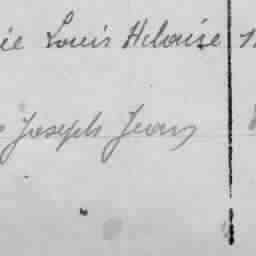 ie Louis Heloise
Joseph Jean